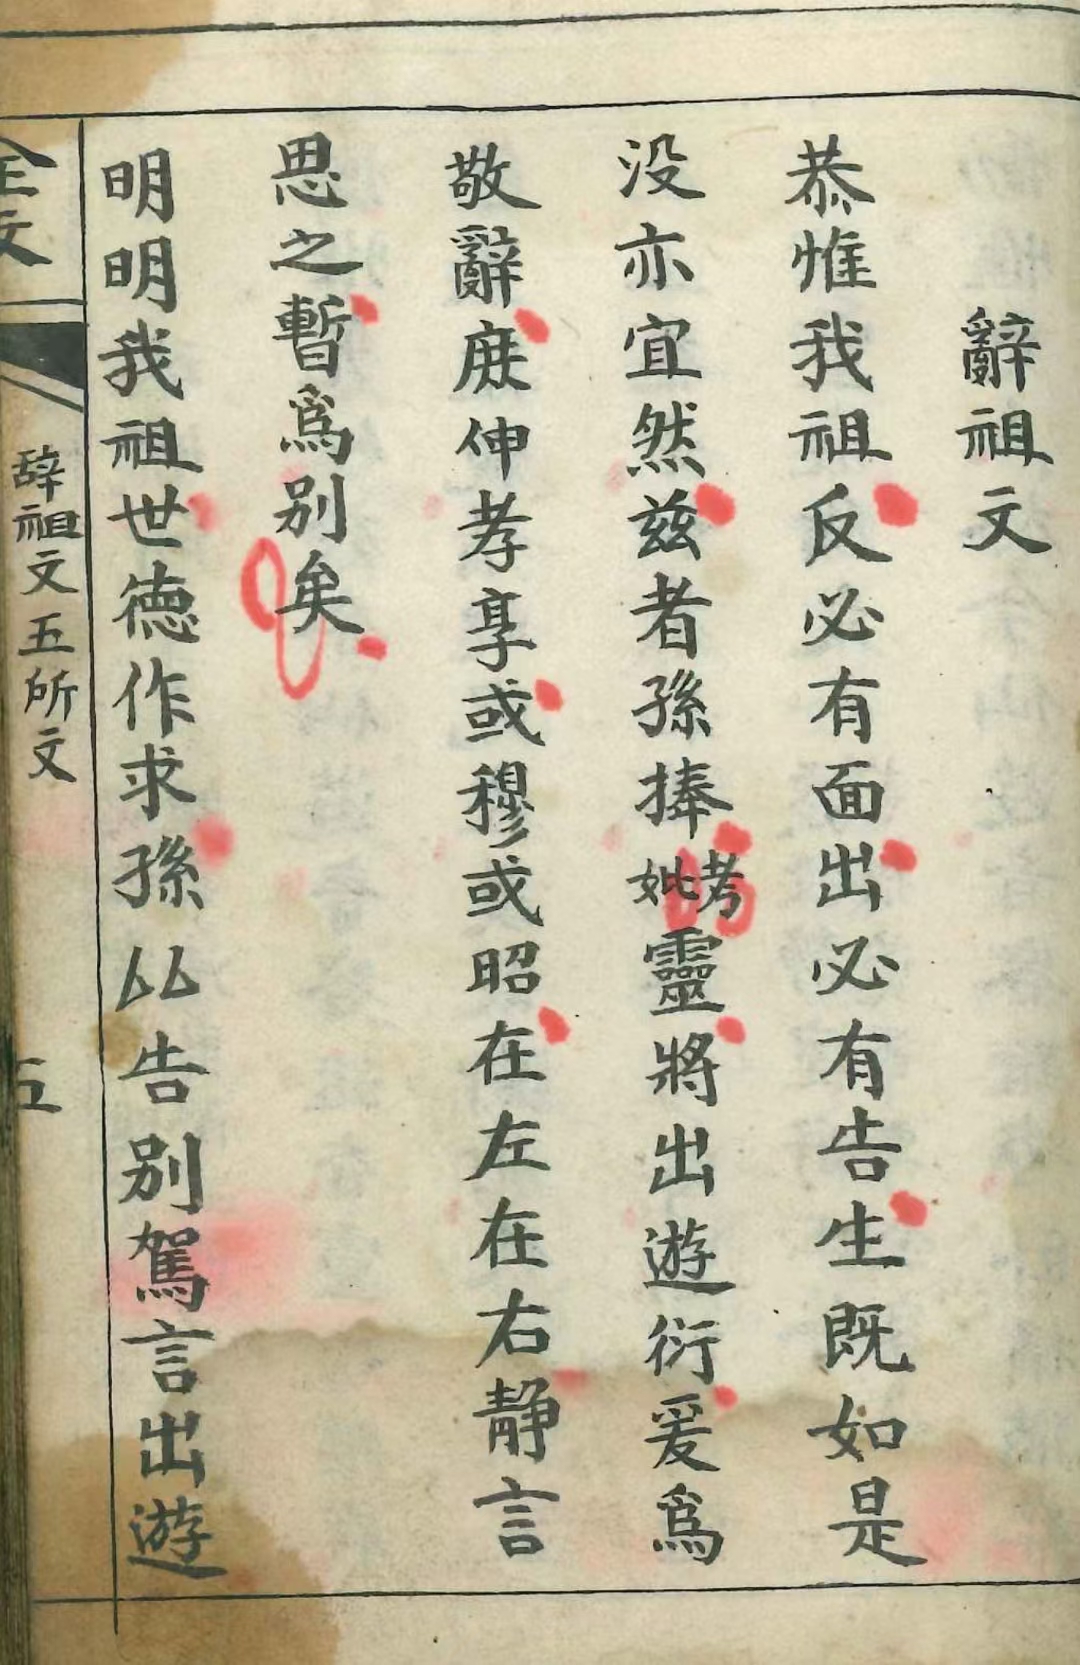 辭祖文
恭惟我祖反必有面出必有告生既如是
没亦宜然兹者孫捧考妣靈將出遊衍爰爲
敬辭庶伸孝享或穆或昭在左在右静言
思之暫爲別矣
明明我祖世德作求孫以告別駕言出遊
全文
辞祖文五所文
五